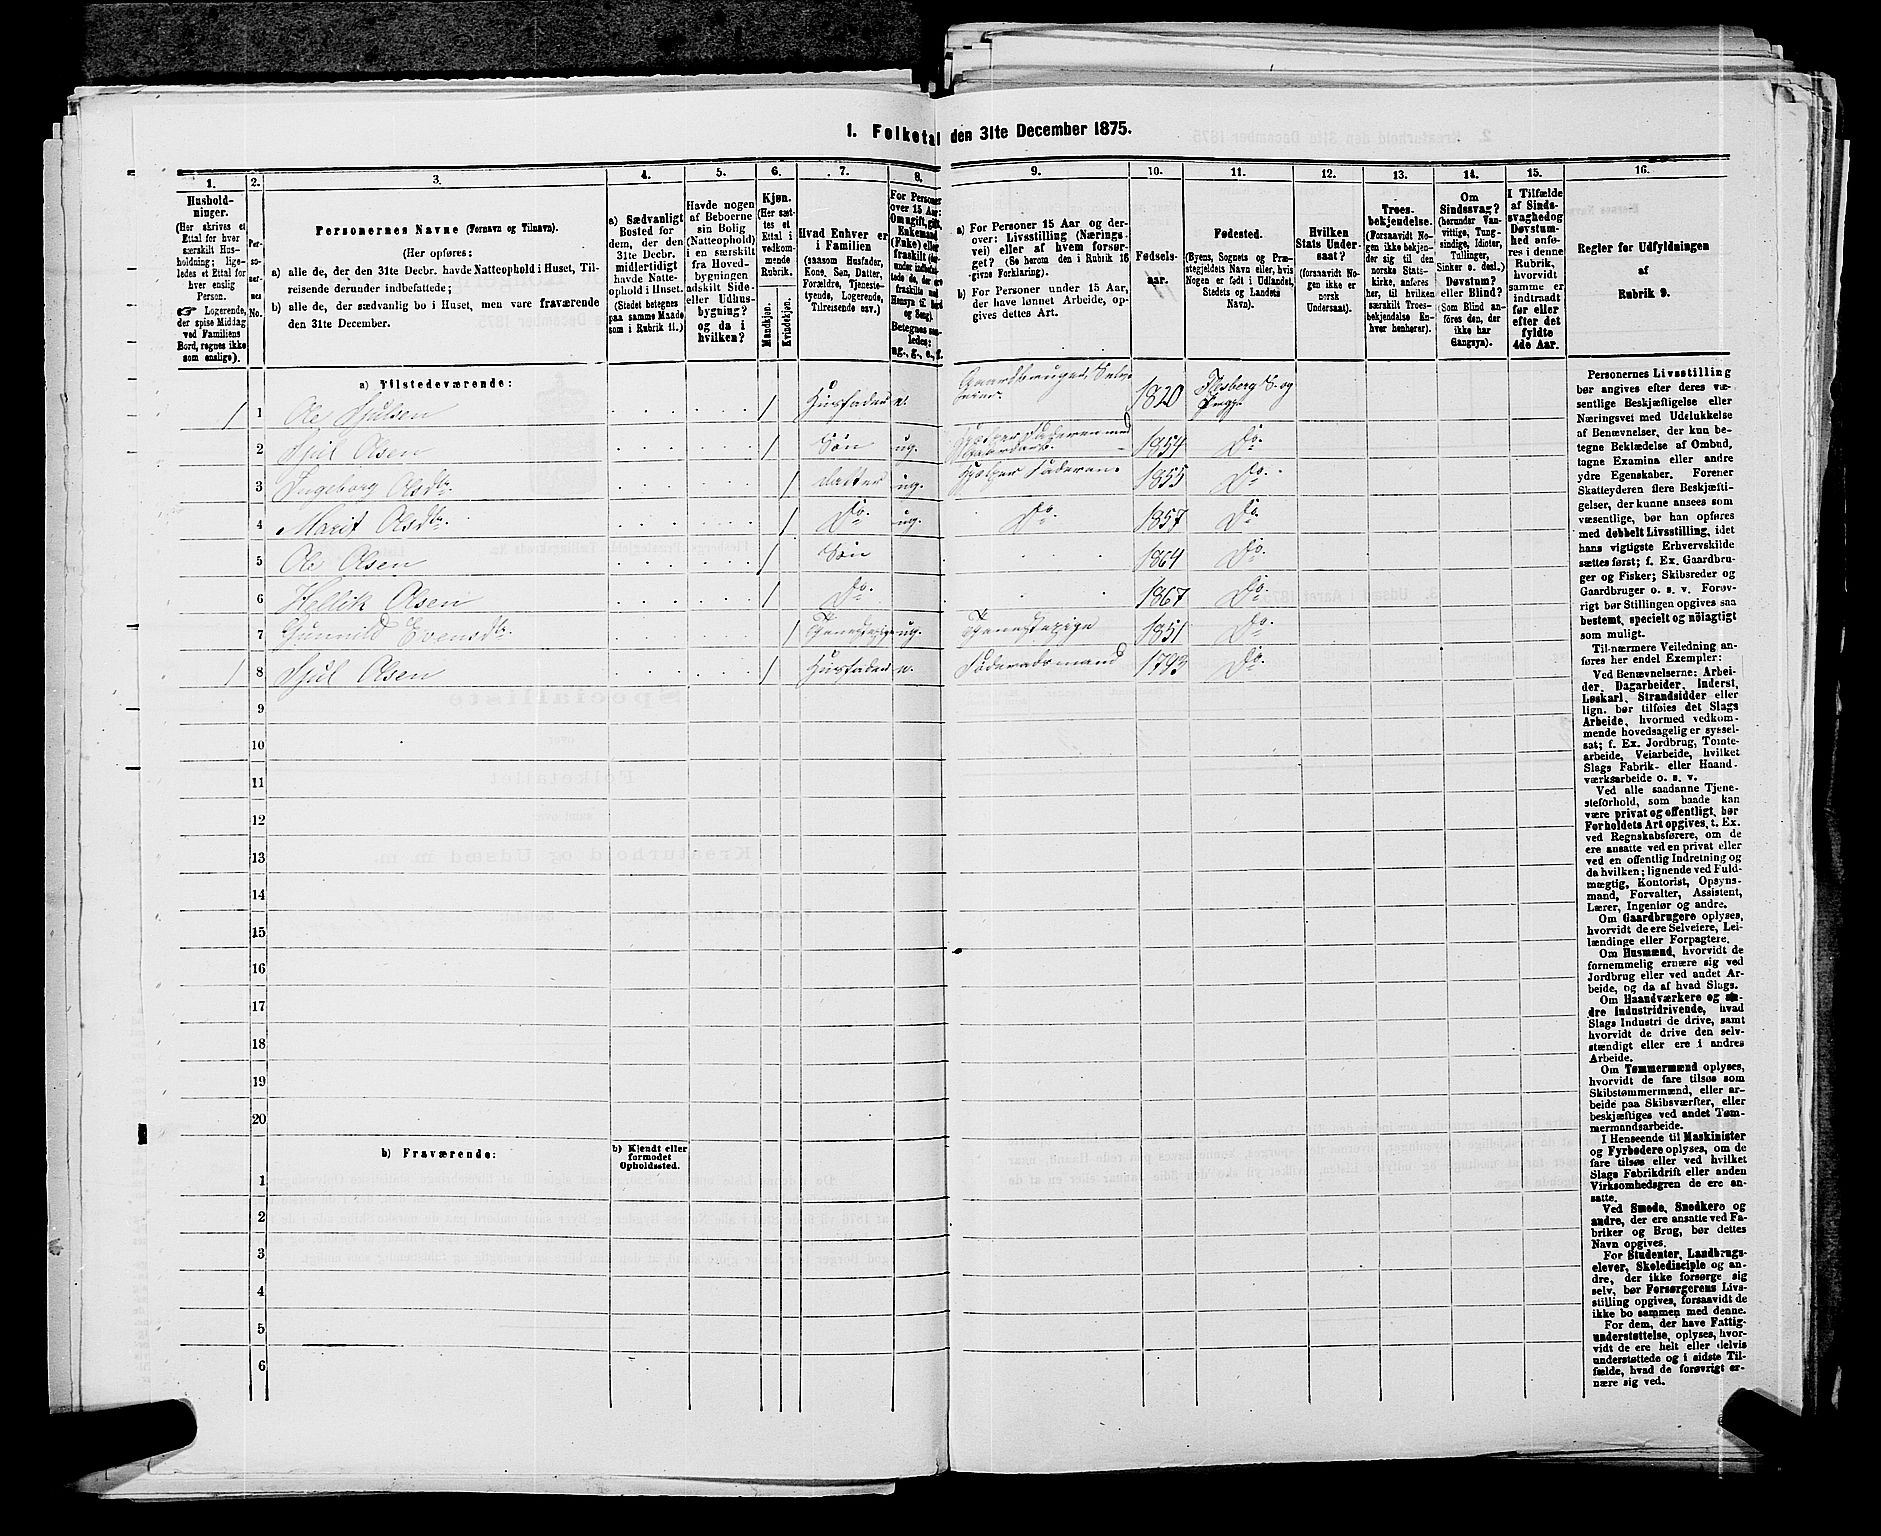 1. Folketal den 31te December 1875.
1.
2.
3.
4.
5.
6.
7.
8.
9.
10.
11.
12.
13.
14.
15.
16.
Hushold-
ninger.
(Her skrives et
Ettal for hver
særskilt Hus-
holdning; lige-
ledes et Ettal for
hver enslig
Person.
☛ Logerende,
der spise Middag
ved Familiens
Bord, regnes ikke
som enslige).
Per-
so-
ner-
nes
No.
Personernes Navne (Fornavn og Tilnavn).
(Her opføres:
a) alle de, der den 31te Decbr. havde Natteophold i Huset, Til-
reisende derunder indbefattede;
b) alle de, der sædvanlig bo i Huset, men vare fraværende
den 31te December.
a) Sædvanligt
Bosted for
dem, der den
31te Decbr.
midlertidigt
havde Natte-
ophold i Huset.
(Stedet betegnes
paa samme Maade
som i Rubrik 11.)
Havde nogen
af Beboerne
sin Bolig
(Natteophold)
i en særskilt
fra Hoved-
bygningen
adskilt Side-
eller Udhus-
bygning?
og da i
hvilken?
Kjøn.
(Her sæt-
tes et
Ettal i
vedkom-
mende
Rubrik.
Mandkjøn.
Kvindekjøn.
Hvad Enhver er
i Familien
(saasom Husfader,
Kone, Søn, Datter,
Forældre, Tjeneste-
tyende, Logerende,
Tilreisende osv.)
For Personer
over 15 Aar:
Om ugift, gift,
Enkemand
(Enke) eller
fraskilt (der-
under indbefat-
tede de, der ere
fraskilte med
Hensyn til Bord
og Seng).
Betegnes saa-
ledes:
ug., g., e., f.
a) For Personer 15 Aar og der-
over: Livsstilling (Nærings-
vei) eller af hvem forsør-
get? (Se herom den i Rubrik 16
givne Forklaring).
b) For Personer under 15 Aar,
der have lønnet Arbeide, op-
gives dettes Art.
Fødsels-
aar.
Fødested.
(Byens, Sognets og Præ-
stegjeldets Navn eller, hvis
Nogen er født i Udlandet,
Stedets og Landets
Navn).
Hvilken
Stats Under-
saat?
(forsaavidt No-
gen ikke er
norsk
Undersaat).
Troes-
bekjendelse.
(Forsaavidt No-
gen ikke bekjen-
der sig til den
norske Stats-
kirke, anføres
her, til hvilken
særskilt Troes-
bekjendelse En-
hver henhører).
Om
Sindssvag?
(herunder Van-
vittige, Tung-
sindige, Idioter,
Tullinger,
Sinker o. desl.)
Døvstum?
eller Blind?
(Som Blind an-
føres den, der
ikke har
Gangsyn).
I Tilfælde
af Sinds-
svaghed og
Døvstum-
hed anfø-
res i denne
Rubrik,
hvorvidt
samme er
indtraadt
før eller
efter det
fyldte
4de Aar.
Regler for Udfyldningen
af
Rubrik 9.
a) Tilstedeværende:
1 1 Ole Sjulsen / Husfader e. Gaardbruger, Selv- eier. 1820 Flesberg S. og Præg.
2 Sjul Olsen / Søn ug. Hjelper Faderen med Gaardsbr. 1854 Do.
3 Ingeborg Olsdtr. / datter ug. Hjelper Faderen. 1855 Do.
4 Marit Olsdtr. / Do. ug. Do. 1857 Do.
5 Ole Olsen / Søn 1864 Do.
6 Hellik Olsen / Do. 1867 Do.
7 Gunnild Evensdtr. / Tjenestepige ug. Tjenestepige 1851 Do.
1 8 Sjul Olsen / Husfader e. Føderaadsmand 1793 Do.
9
10
11
12
13
14
15
16
17
18
19
20
b) Fraværende:
b) Kjendt eller
formodet
Opholdssted.
1
2
3
4
5
6
Personernes Livsstilling
bør angives efter deres væ-
sentlige Beskjæftigelse eller
Næringsvei med Udelukkelse
af Benævnelser, der kun be-
tegne Beklædelse af Ombud,
tagne Examina eller andre
ydre Egenskaber. Forener
Skatteyderen flere Beskjæfti-
gelser, der kunne ansees som
væsentlige, bør han opføres
med dobbelt Livsstilling, idet
hans vigtigste Erhvervskilde
sættes først; f. Ex. Gaardbru-
ger og Fisker; Skibsreder og
Gaardbruger o. s. v. Forøv-
rigt bør Stillingen opgives saa
bestemt, specielt og nøiagtigt
som muligt.
Til nærmere Veiledning an-
føres her endel Exempler:
Ved Benævnelserne: Arbei-
der, Dagarbeider, Inderst,
Løskarl, Strandsidder eller
lign. bør tilføies det Slags
Arbeide, hvormed vedkom-
mende hovedsagelig er syssel-
sat; f. Ex. Jordbrug, Tomte-
arbeide, Veiarbeide, hvilket
Slags Fabrik- eller Haand-
værksarbeide o. s. v.
Ved alle saadanne Tjene-
steforhold, som baade kan
være privat og offentligt, bør
Forholdets Art opgives, t. Ex.
ved Regnskabsførere, om de
ere ansatte ved en privat eller
ved en offentlig Indretning og
da hvilken; lignende ved Fuld-
mægtig, Kontorist, Opsyns-
mand, Forvalter, Assistent,
Lærer, Ingeniør og andre.
Om Gaardbrugere oplyses,
hvorvidt de ere Selveiere, Lei-
lændinge eller Forpagtere.
Om Husmænd, hvorvidt de
fornemmelig ernære sig ved
Jordbrug eller ved andet Ar-
beide, og da af hvad Slags.
Om Haandværkere og an-
dre Industridrivende, hvad
Slags Industri de drive, samt
hvorvidt de drive den selv-
stændigt eller ere i andres
Arbeide.
Om Tømmermænd oplyses,
hvorvidt de fare tilsøs som
Skibstømmermænd, eller ar-
beide paa Skibsværfter, eller
beskjæftiges ved andet Tøm-
mermandsarbeide.
I Henseende til Maskinister
og Fyrbødere oplyses, om de
fare tilsøs eller ved hvilket
Slags Fabrikdrift eller anden
Virksomhedsgren de ere an-
satte.
Ved Smede, Snedkere og
andre, der ere ansatte ved Fa-
briker og Brug, bør dettes
Navn opgives.
For Studenter, Landbrugs-
elever, Skoledisciple og an-
dre, der ikke forsørge sig
selv, bør Forsørgerens Livs-
stilling opgives, forsaavidt de
ikke bo sammen med denne.
For dem, der have Fattig-
understøttelse, oplyses, hvor-
vidt de ere helt eller delvis
understøttede og i sidste Til-
fælde, hvad de forøvrigt er-
nære sig ved.